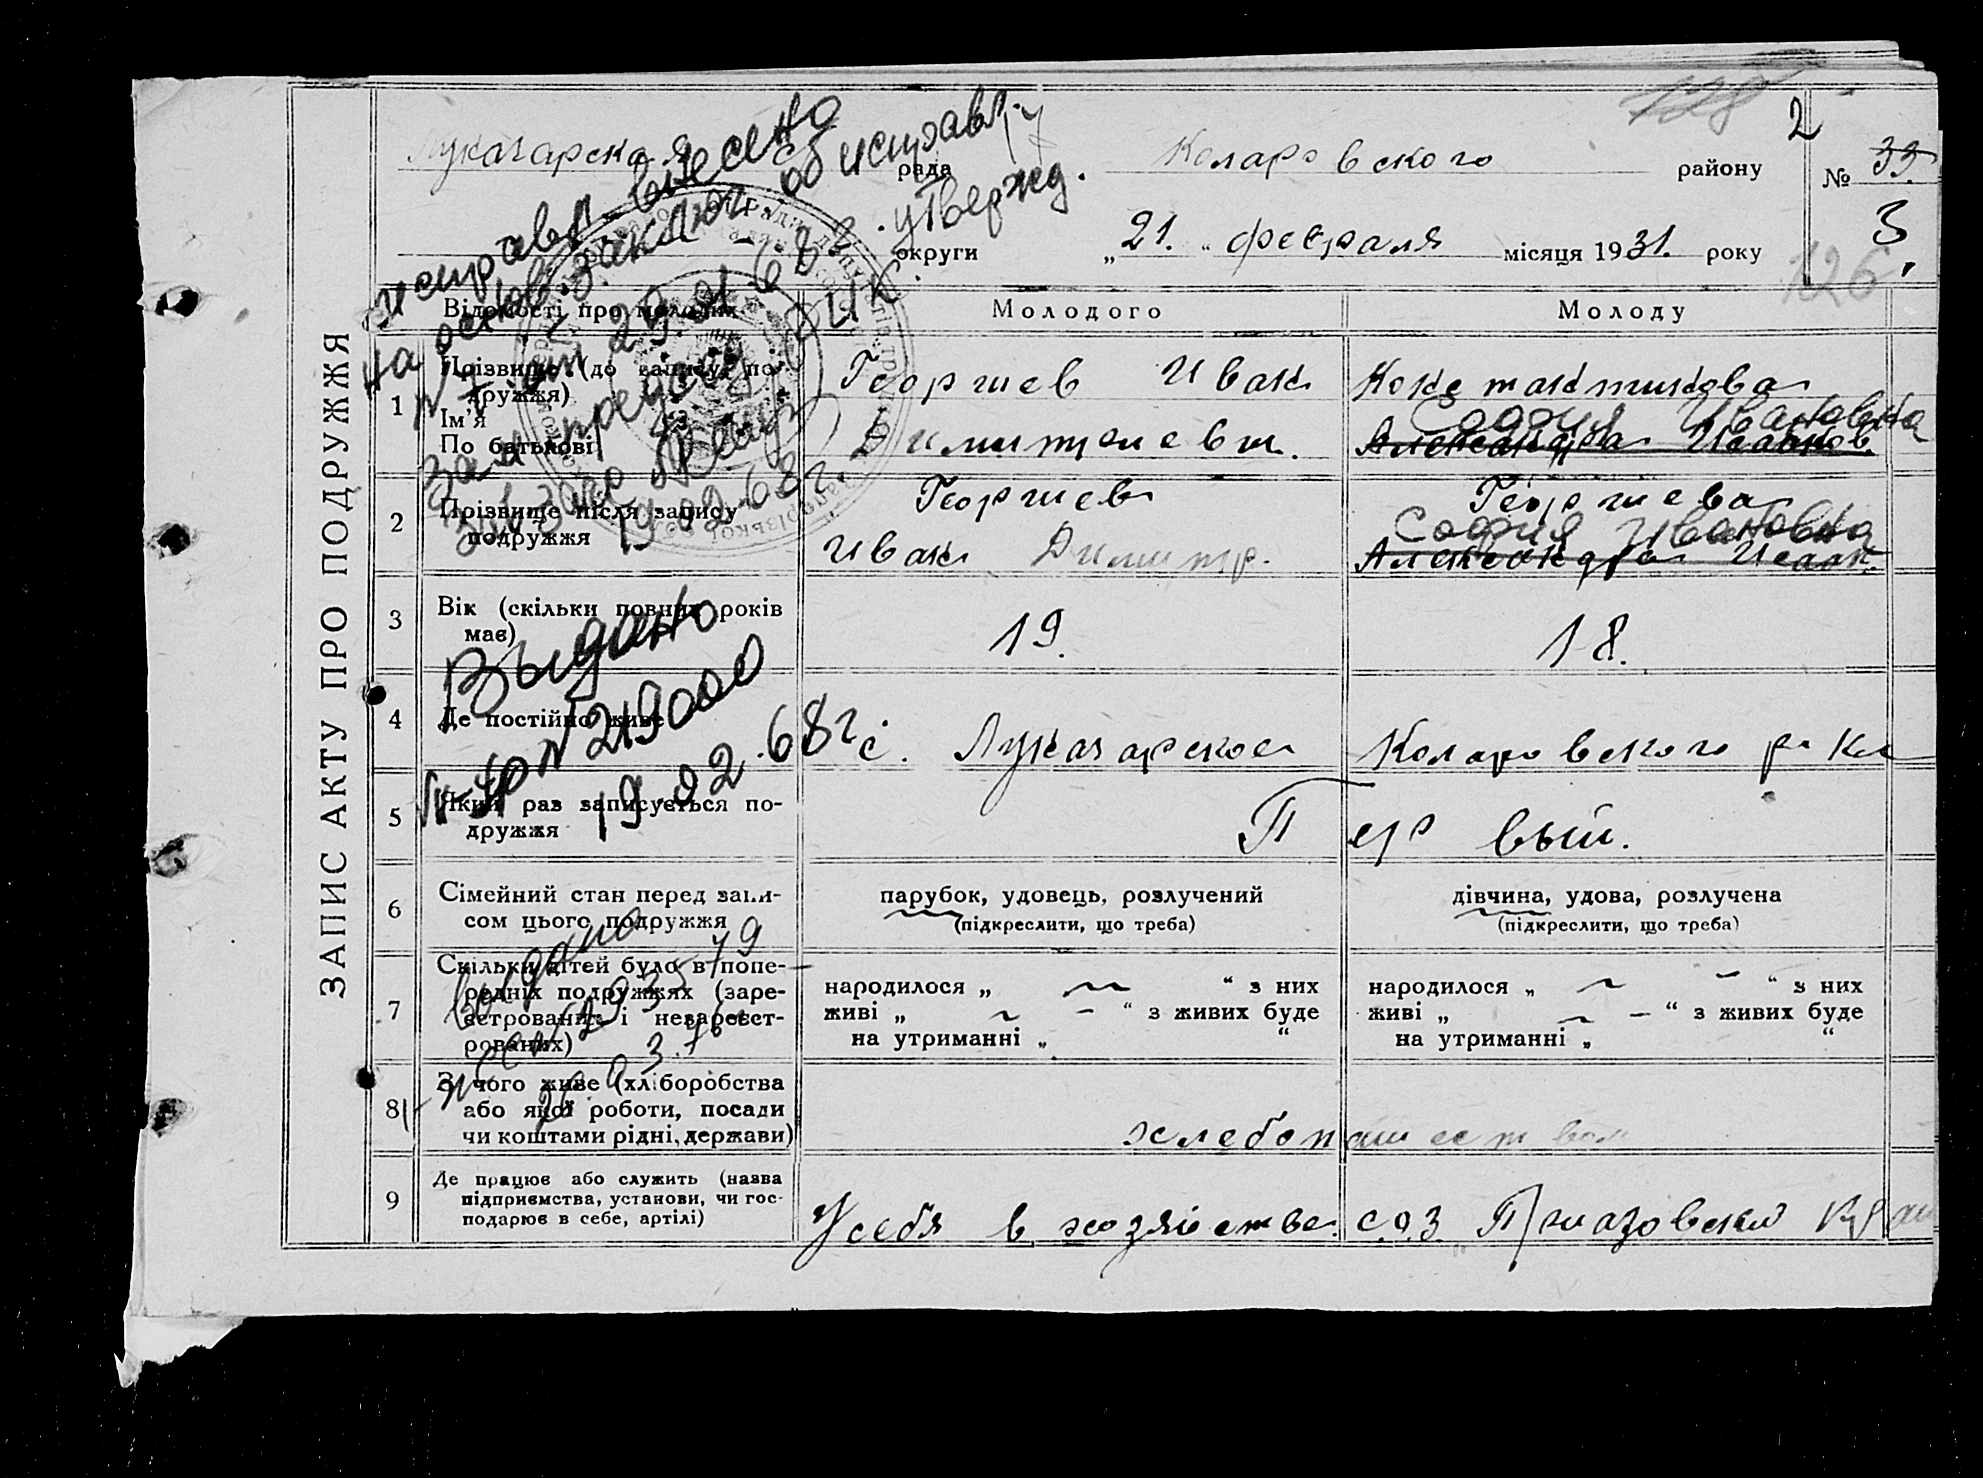 128
2
Лукачарская рада Коларовского району № 33.
3
округи „21." февраля місяця 1931. року
126
исправл. внесено
на основ. заключ. об исправл.
№ 7 от 29.01.68 г. утвержд.
19.02.68г.
ЗАПИС АКТУ ПРО ПОДРУЖЖЯ
Відомості про молодих Молодого Молоду
1 Прізвище (до запису по-
дружжя)
Ім'я
По батькові
Георгиев Иван
Димитриевич.
Константинова
София Ивановна
Александра Иванов.
2 Прізвище після запису
подружжя
Георгиев
Иван Димитр.
Георгиева
София Ивановна
Александра Иван.
3 Вік (скільки повних років
має)
19. 18.
Выдано
№ 219000
19.02.68г
4 Де постійно живе
с. Лукачарское Коларовского р-на
5 Який раз записується по-
дружжя
Первый.
6 Сімейний стан перед запи-
сом цього подружжя
парубок, удовець, розлучений
(підкреслити, що треба)
дівчина, удова, розлучена
(підкреслити, що треба)
выдано
7 Скільки дітей було в попе-
редніх подружжях (заре-
єстрованих і незареєст-
рованих)
народилося „ — " з них
живі „ — " з живих буде
на утриманні „ "
народилося „ — " з них
живі „ — " з живих буде
на утриманні „ "
8 З чого живе (хліборобства
або якої роботи, посади
чи коштами рідні, держави)
хлебопашеством
9 Де працює або служить (назва
підприємства, установи, чи гос-
подарює в себе, артілі)
У себя в хозяйстве. с.о.з. „Приазовский